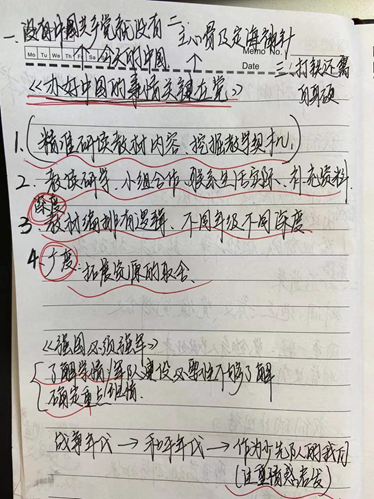 一、没有中国共产党就没有 二、主心骨及定海神针
Mo Tu We Th Fr Sa Su 今天的中国 Memo No.
Date 三、打铁还需
自身硬
《办好中国的事情关键在党》
1. (精准研读教材内容、挖掘教学契机)
2. 教读研学、小组合作、联系生活实际、补充资料
深度
3 教材编排有逻辑、不同年级不同深度
4. 广度：拓展资源的取舍
《强国必须强军》
了解学情：军队建设必要性不够了解
确定重点组情
战争年代 → 和平年代 → 作为少先队的我们
(注重情感启发)